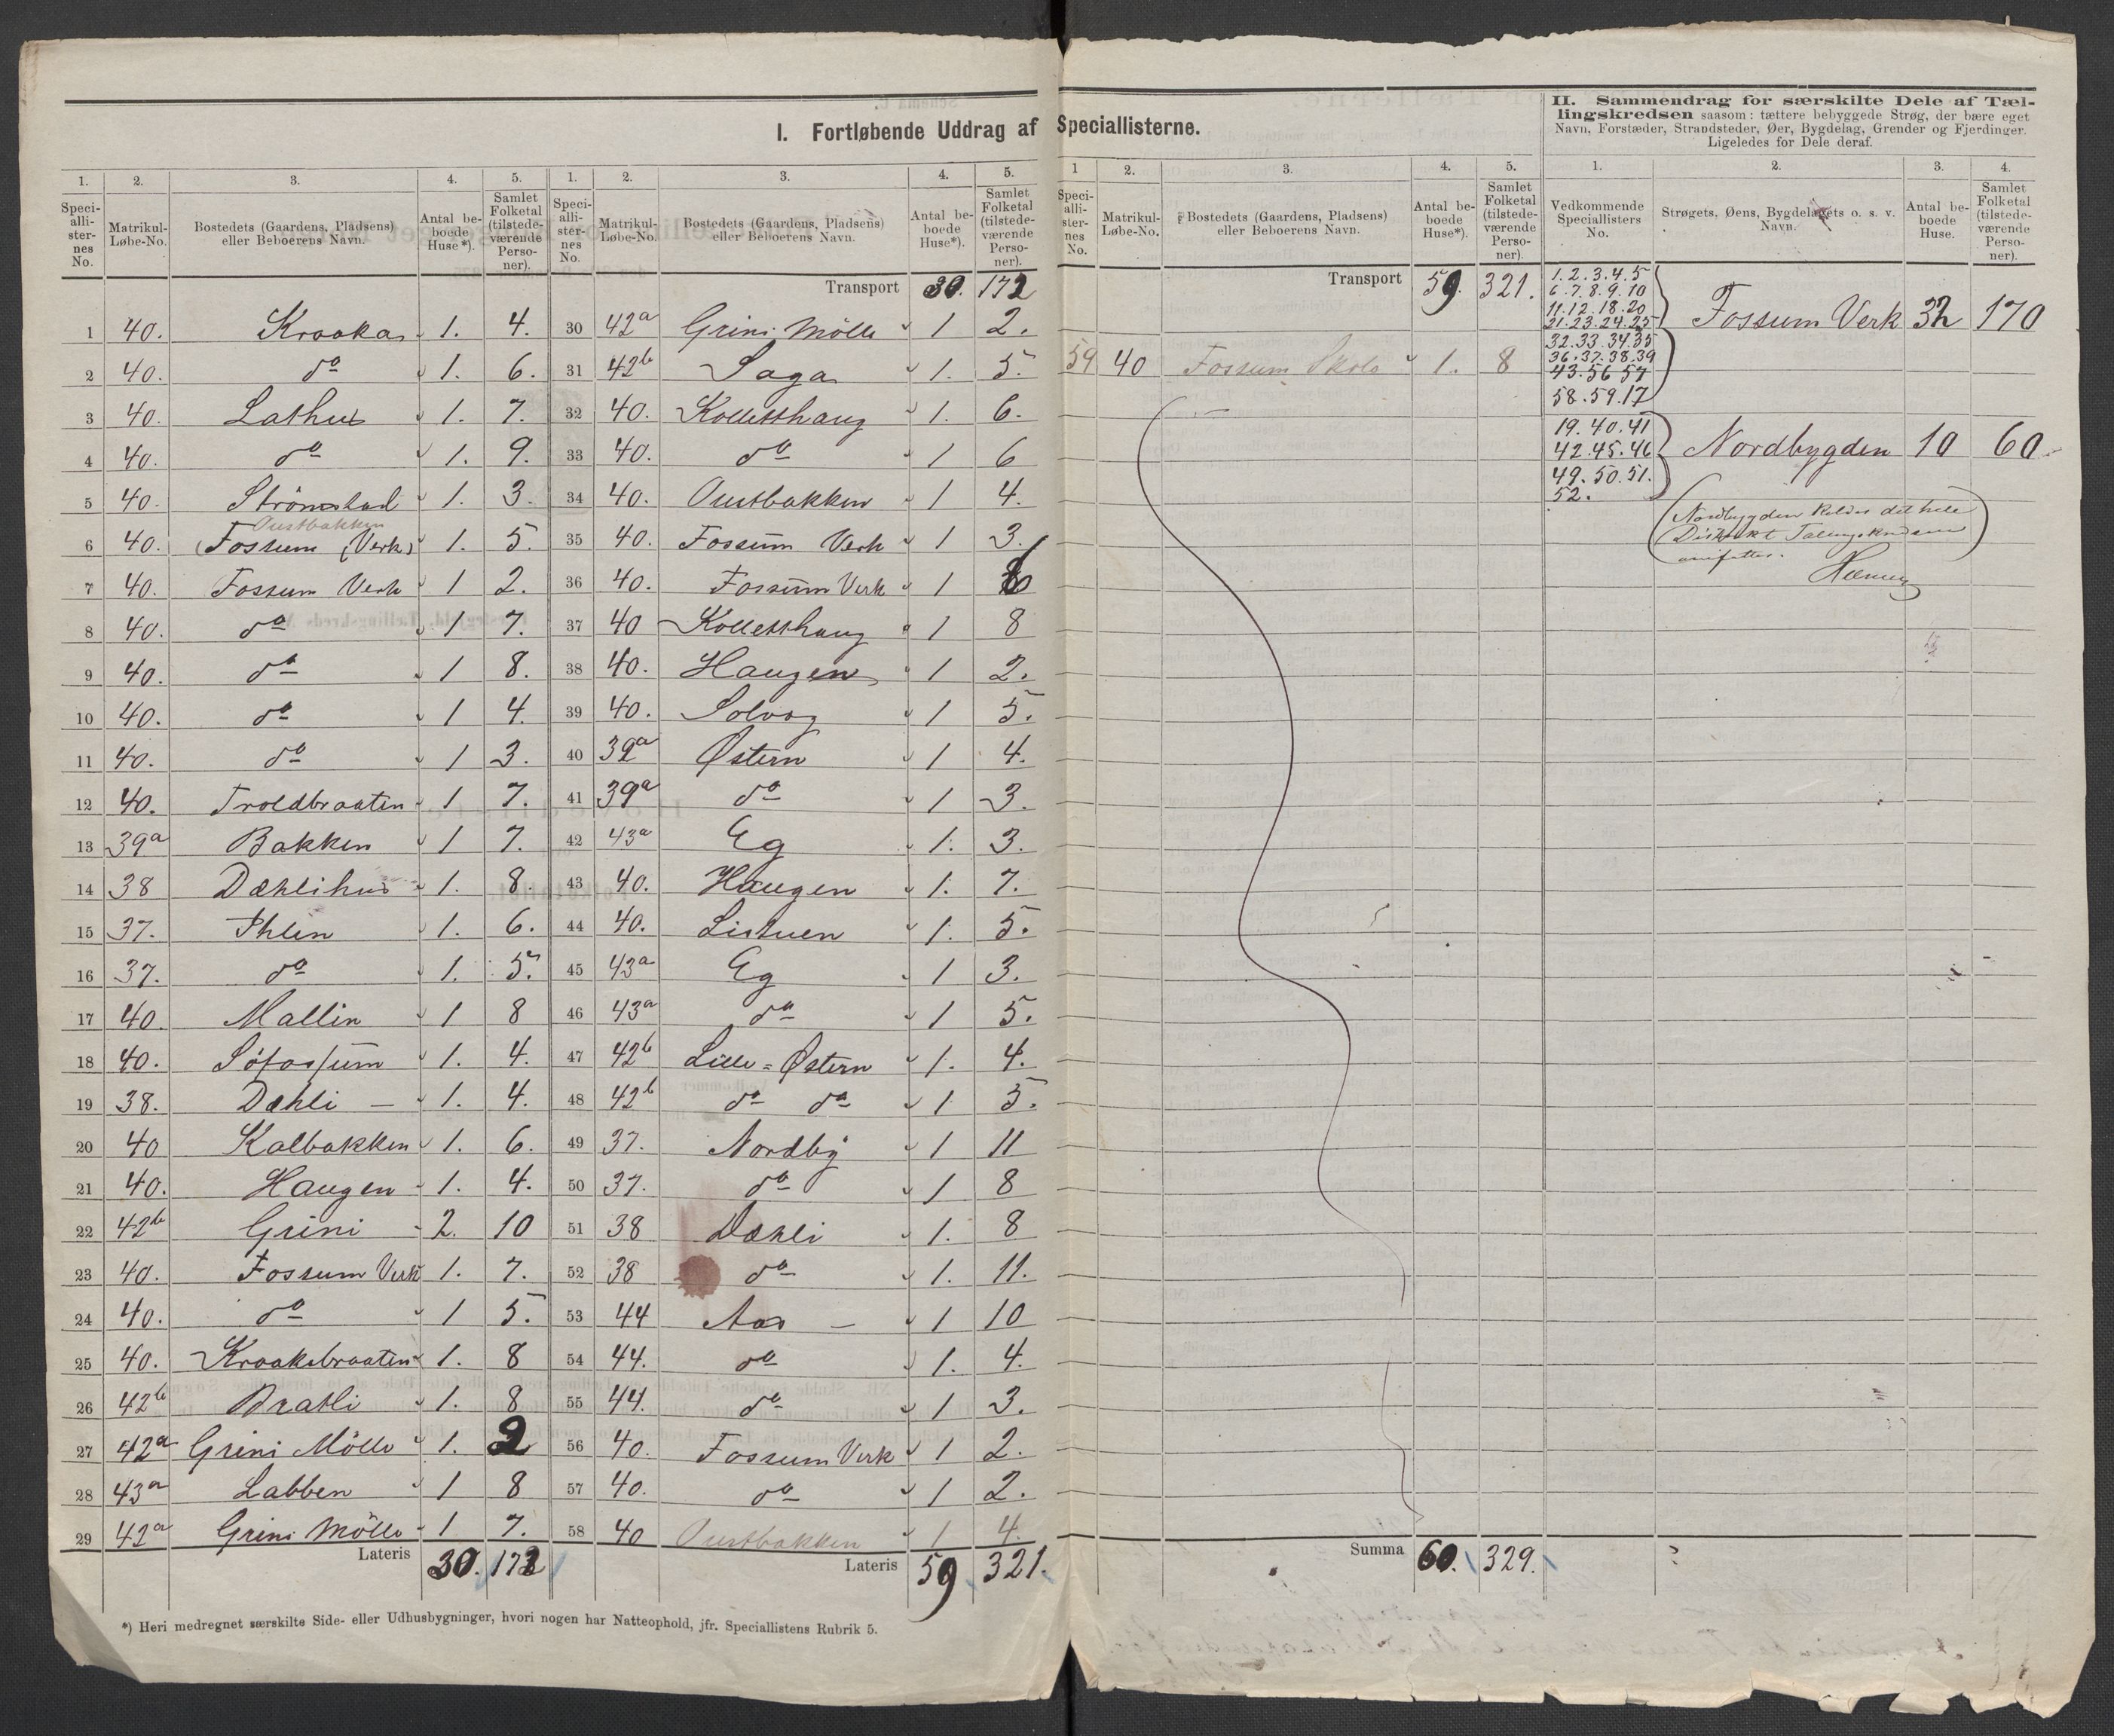 I. Fortløbende Uddrag af Speciallisterne.
1. 2. 3. 4. 5.
Speci-alli-ster-nes No. Matrikul-Løbe-No. Bostedets (Gaardens, Pladsens) eller Beboerens Navn. Antal be-boede Huse*). Samlet Folketal (tilstede-værende Perso-ner).
1 40. Kraaka 1. 4.
2 40. do 1. 6.
3 40. Lathus 1. 7.
4 40. do 1. 9.
5 40. Strömstad 1. 3.
Oustbakken
6 40. (Fossum (Verk) 1. 5.
7 40. Fossum Verk 1 2.
8 40. do 1 7.
9 40. do 1 8.
10 40. do 1 4.
11 40. do 1 3.
12 40. Troldbraaten 1 7.
13 39a Bakken 1 7.
14 38 Dæhlihus 1. 8.
15 37. Ihlen 1. 6.
16 37. do 1. 5.
17 40. Mallin 1 8
18 40. Söfossum 1. 4.
19 38. Dæhli — 1. 4.
20 40 Kalbakken 1. 6.
21 40. Haugen 1. 4.
22 42b Grini 2. 10
23 40. Fossum Verk 1. 7.
24 40. do 1 5.
25 40. Kraakebraaten 1. 8
26 42b Bratli 1. 8
27 42a Grini Mölle 1. 2
28 43a Labben 1 8
29 42a Grini Mölle 1 7.
Lateris 30. 172
1. 2. 3. 4. 5.
Speci-alli-ster-nes No. Matrikul-Løbe-No. Bostedets (Gaardens, Pladsens) eller Beboerens Navn. Antal be-boede Huse*). Samlet Folketal (tilstede-værende Perso-ner).
Transport 30. 172
30 42a Grini Mölle 1 2.
31 42b Saga 1. 5.
32 40. Kolletshaug 1. 6.
33 40. do 1 6
34 40. Oustbakken 1 4.
35 40. Fossum Verk 1 3.
36 40. Fossum Verk 1
37 40 Kolletshaug 1 8
38 40. Haugen 1 2.
39 40. Solvog 1 5.
40 39a Østern 1 4.
41 39a do 1 3.
42 43a Eg 1. 3.
43 40. Haugen 1. 7.
44 40. Listuen 1. 5.
45 43a Eg 1 3.
46 43a do 1 5.
47 42b Lille=Østern 1. 4.
48 42b do do 1 5.
49 37. Nordby 1 11
50 37. do 1 8
51 38 Dæhli 1. 8
52 38 do 1. 11.
53 44 Aas — 1 10
54 44. do 1. 4.
55 44. do 1 3.
56 40. Fossum Verk 1 2.
57 40. do 1 2.
58 40 Oustbakken 1 4.
Lateris 59 321.
*) Heri medregnet særskilte Side- eller Udhusbygninger, hvori nogen har Natteophold, jfr. Speciallistens Rubrik 5.
1 2. 3. 4. 5.
Speci-alli-ster-nes No. Matrikul-Løbe-No. Bostedets (Gaardens, Pladsens) eller Beboerens Navn. Antal be-boede Huse*). Samlet Folketal (tilstede-værende Perso-ner).
Transport 59. 321.
59 40 Fossum Skole 1. 8
Summa 60. 329.
II. Sammendrag for særskilte Dele af Tæl-
lingskredsen saasom: tættere bebyggede Strøg, der bære eget
Navn, Forstæder, Strandsteder, Øer, Bygdelag, Grender og Fjerdinger.
Ligeledes for Dele deraf.
1. 2. 3. 4.
Vedkommende Speciallisters No. Strøgets, Øens, Bygdelagets o. s. v. Navn. Antal be-boede Huse. Samlet Folketal (tilstede-værende Perso-ner).
1. 2. 3. 4. 5
6. 7. 8. 9. 10
11. 12. 18. 20
21. 23. 24. 25 Fossum Verk 32 170
32. 33. 34. 35
36. 37. 38. 39
43. 56 57
58. 59. 17
19. 40. 41
42. 45. 46 Nordbygden 10 60
49. 50. 51.
52.
(Nordbygden kaldes det hele
Distrikt